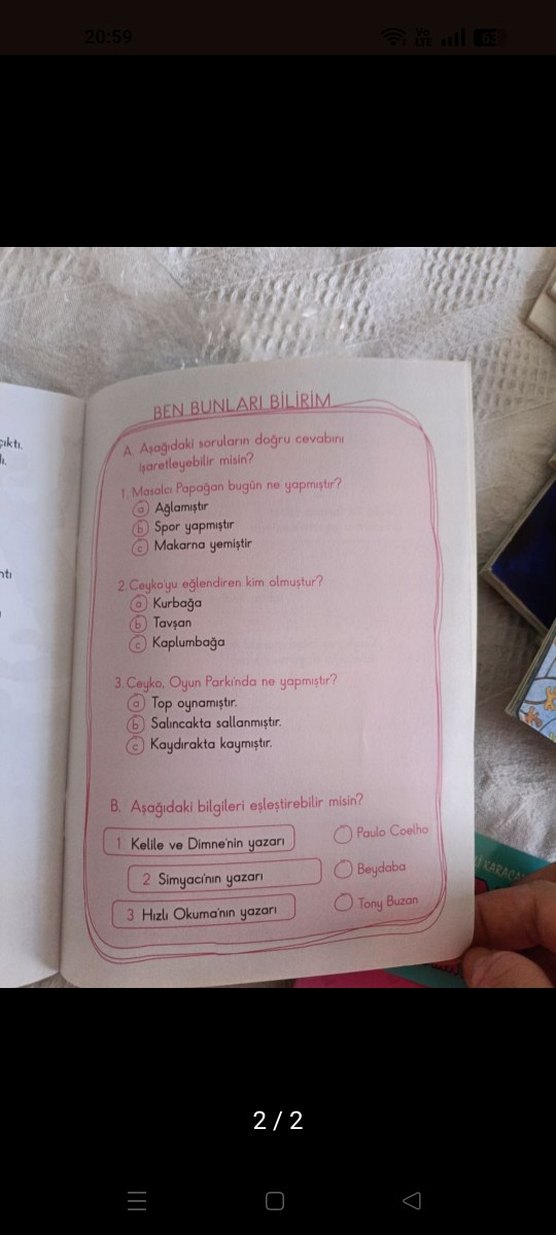 20:59
Vo
LTE
63
çıktı.
BEN BUNLARI BİLİRİM
A. Aşağıdaki soruların doğru cevabını
işaretleyebilir misin?
1. Masalcı Papağan bugün ne yapmıştır?
a Ağlamıştır
b Spor yapmıştır
c Makarna yemiştir
2. Ceyko'yu eğlendiren kim olmuştur?
a Kurbağa
b Tavşan
c Kaplumbağa
3. Ceyko, Oyun Parkı'nda ne yapmıştır?
a Top oynamıştır.
b Salıncakta sallanmıştır.
c Kaydırakta kaymıştır.
B. Aşağıdaki bilgileri eşleştirebilir misin?
1 Kelile ve Dimne'nin yazarı
Paulo Coelho
2 Simyacı'nın yazarı
Beydaba
3 Hızlı Okuma'nın yazarı
Tony Buzan
2 / 2